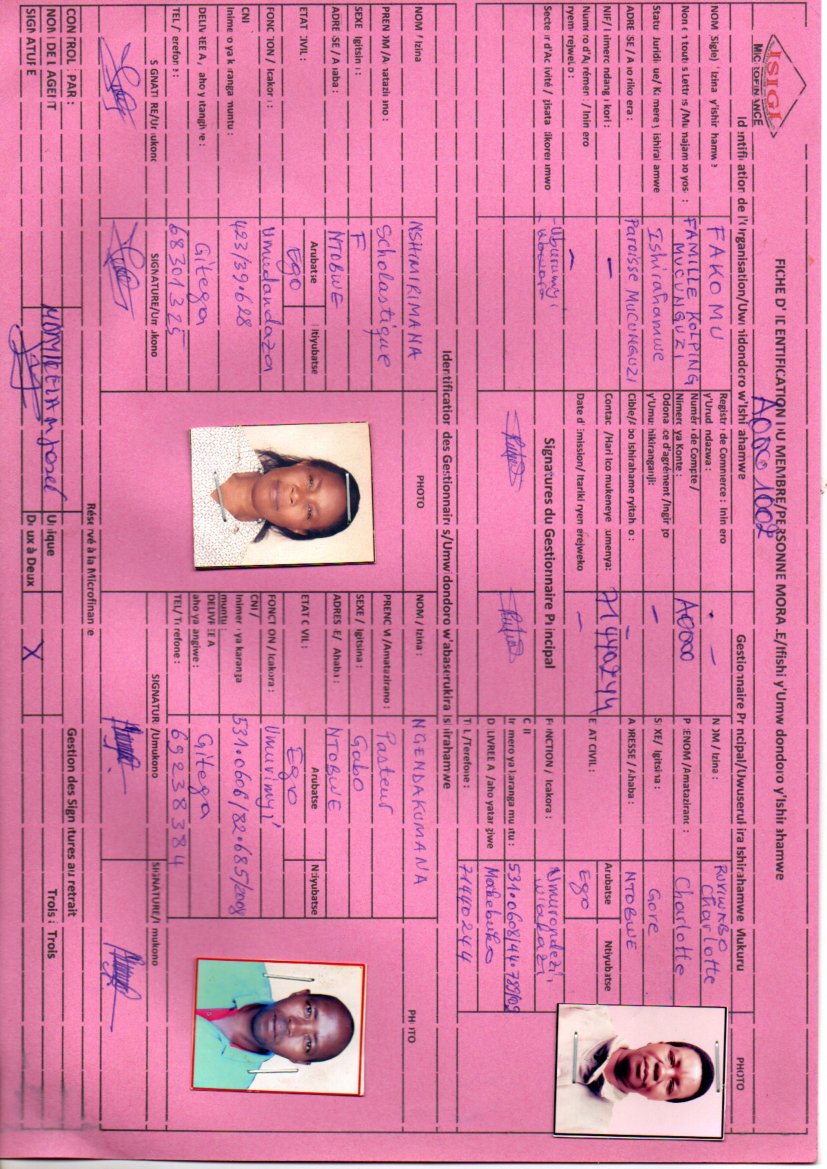 ISIGI
MICROFINANCE
FICHE D'IDENTIFICATION DU MEMBRE/PERSONNE MORALE/Ifishi y'Umwidondoro y'Ishirahamwe
A0000 1002
Identification de l'Organisation/Umwidondoro w'Ishirahamwe
Gestionnaire Principal/Uwuserukira Ishirahamwe Mukuru
PHOTO
NOM (Sigle) / Izina ry'ishirahamwe
FAKOMU
Non en toute Lettres /Mu majambo yose :
FAMILLE KOLPING MUCUNGUZI
Statut Juridique/ Kamere y'ishirahamwe
Ishirahamwe
ADRESSE / Aho rikorera :
Paroisse MUCUNGUZI
NIF/ Numero ndangakori :
—
Numéro d'Agrément / Inimero
ryemerejweko :
—
Secteur d'Activité / gisata rikoreramwo
- Uburimyi
- Ubworozi
Registre de Commerce : Inimero
y'Urudandazwa :
—
Numéro de Compte /
Nimero ya Konte :
A0000
Odonance d'agrément /Ingingo
y'Umushikiranganji:
—
Cible/Abo Ishirahamwe ryitaho :
—
Contact /Hari ico mukeneye kumenya:
71440244
Date d'émission/ Itariki ryemerejweko
—
Signatures du Gestionnaire Principal
NOM / Izina :
RURIWABO Charlotte
PRENOM /Amatazirano :
Charlotte
SEXE/ Igitsina :
Gore
ADRESSE / Ahaba :
NTOBWE
ETAT CIVIL :
Arubatse
Ntiyubatse
Ego
FONCTION / Icakora :
Umurondezi w'akazi
CNI
Inimero ya karanga muntu :
531.0608/44.785/08
DELIVREE A / aho yatangiwe
Makebuko
TEL/Terefone :
71440244
Identification des Gestionnaires/Umwidondoro w'abaserukira ishirahamwe
NOM / Izina
NSHIMIRIMANA
PRENOM /Amatazirano :
Scholastique
SEXE / Igitsina :
F
ADRESSE / Ahaba :
NTOBWE
ETAT CIVIL :
Arubatse
Ntiyubatse
Ego
FONCTION / Icakora :
Umudandaza
CNI
Inimero ya karanga muntu :
423/39.628
DELIVREE A / aho yatangiwe :
Gitega
TEL / Terefone :
68301325
SIGNATURE/Umukono
SIGNATURE/Umukono
PHOTO
NOM / Izina :
NGENDAKUMANA
PRENOM /Amatazirano :
Pasteur
SEXE / Igitsina :
Gabo
ADRESSE / Ahaba :
NTOBWE
ETAT CIVIL :
Arubatse
Ntiyubatse
Ego
FONCTION / Icakora :
Umurimyi
CNI /
Inimero ya karanga
muntu
531.0606/82.685/2008
DELIVREE A
aho yatangiwe :
Gitega
TEL/ Terefone :
69238384
SIGNATURE/Umukono
SIGNATURE/Umukono
PHOTO
Réservé à la Microfinance
CONTROLE PAR :
NOM DE L'AGENT
SIGNATURE
Gestion des Signatures au retrait
Unique
Deux à Deux
X
Trois à Trois